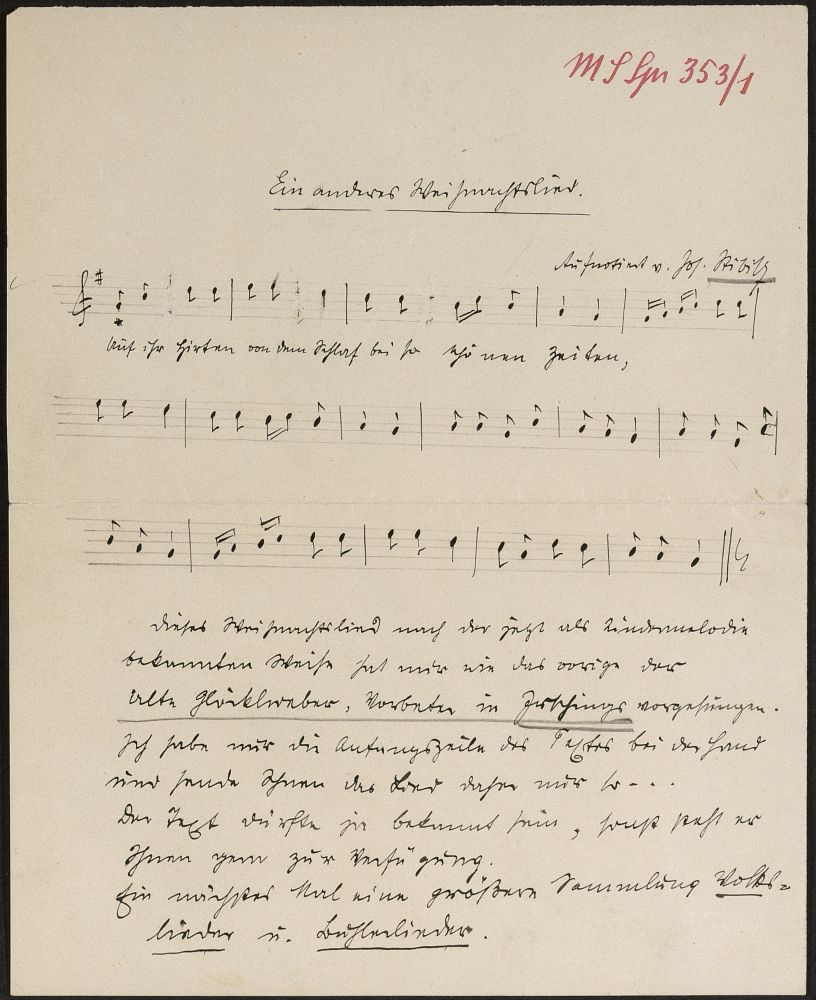 MS Spr 353/1
Ein anderes Weihnachtslied.
Aufnotiert v. Joh. Stibitz
Auf ihr Hirten von dem Schlaf bei so schö nen Zeiten,
Dieses Weihnachtslied nach der jetzt als Kindermelodie
bekannten Weise hat mir wie das vorige der
alte Glöcklweber, Vorbeter in Irschings vorgesungen.
Ich habe nur die Anfangszeile des Textes bei der Hand
und sende Ihnen das Lied daher nur so - . .
Der Text dürfte ja bekannt sein, sonst steht er
Ihnen gern zur Verfügung.
Ein nächstes Mal eine größere Sammlung Volks=
lieder u. Buhlenlieder.